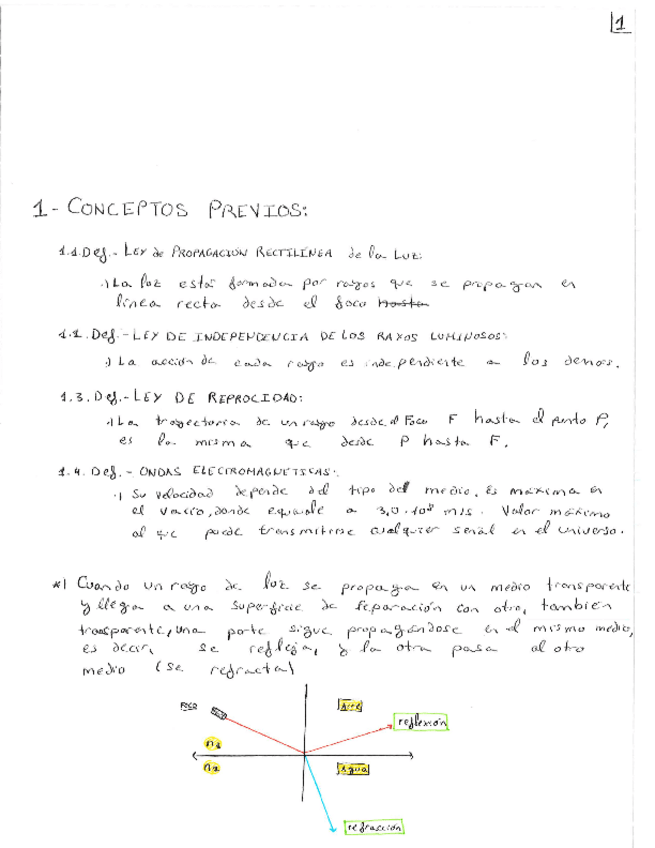 1
1- CONCEPTOS PREVIOS:
1.1. Def.- LEY de PROPAGACIÓN RECTILÍNEA de la LUZ:
·) La luz estar formada por rayos que se propagan en
línea recta desde el foco hasta
1.2. Def.- LEY DE INDEPENDENCIA DE LOS RAYOS LUMINOSOS:
·) La acción de cada rayo es independiente a los demás.
1.3. Def.- LEY DE REPROCIDAD:
·) La trayectoria de un rayo desde el Foco F hasta el punto P,
es la misma que desde P hasta F.
1.4. Def.- ONDAS ELECTROMAGNETICAS:
·) Su velocidad depende del tipo del medio. Es máxima en
el vacío, donde equivale a 3,0·10⁸ m/s. Valor máximo
al que puede transmitirse cualquier señal en el universo.
*) Cuando un rayo de luz se propaga en un medio transparente
y llega a una superficie de separación con otro, también
transparente, una parte sigue propagándose en el mismo medio,
es decir, se refleja, y la otra pasa al otro
medio (se refracta)
FOCO
Aire
reflexión
n1
n2
Agua
refracción